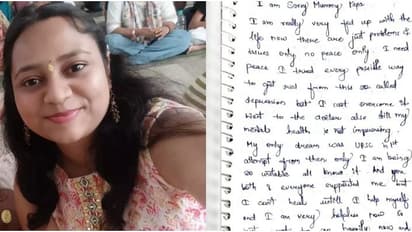 I am Sorry Mummy Papa.
I am really very fed up with the
life now there are just problems &
issues only no peace only. I need
peace I tried every possible way
to get rid from this so called
depression but I cant overcome it
Went to the doctor also still my
mental health is not improving.
My only dream was UPSC in 1st
attempt from then only I am being
so unstable all know it. And you
both & everyone supported me but
I can't heal until I help myself
and I am very helpless now